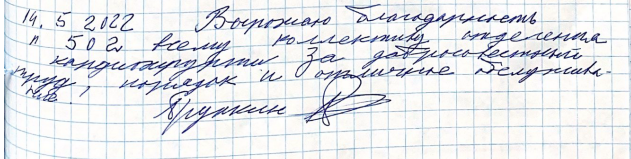 14.5 2022 Выражаю благодарность
" 502 всему коллективу отделения
кардиохирургии за добросовестный
труд, порядок и отличное обслужива-
ние.
Трупкин